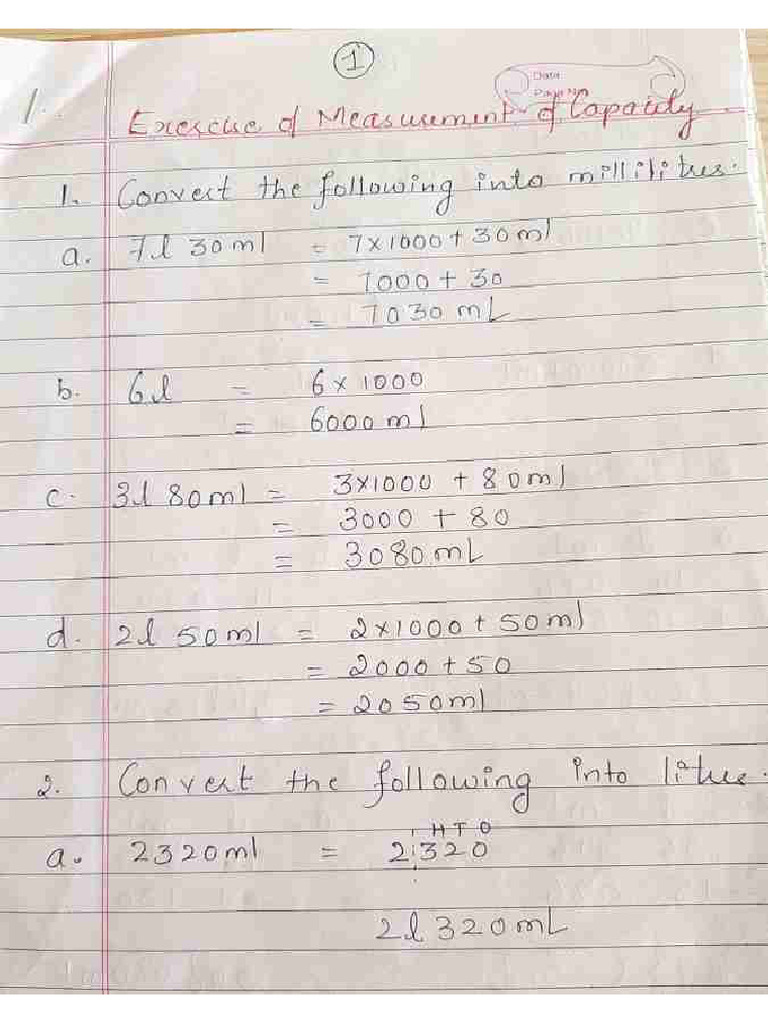 1
Date
Page No
1.
Exercise of Measurement of Capacity
1. Convert the following into millilitres.
a. 7l 30ml = 7×1000+30ml
= 7000+30
= 7030 mL
b. 6l = 6×1000
= 6000ml
c. 3l 80ml = 3×1000 + 80ml
= 3000 + 80
= 3080mL
d. 2l 50ml = 2×1000+50ml
= 2000+50
= 2050ml
2. Convert the following into litres.
H T O
a. 2320ml = 2320
2l 320mL